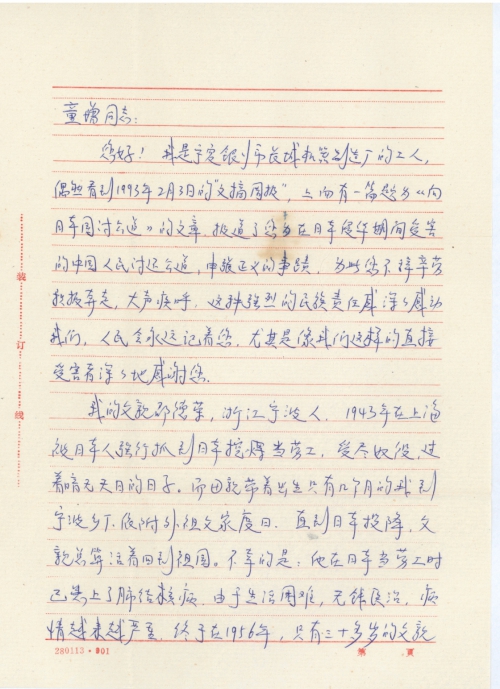 童增同志:
您好！我是宁夏银川市长城机床制造厂的工人，
偶然看到1993年2月3日的“文摘周报”，上面有一篇题为《向
日本国讨公道》的文章，报道了您为在日军侵华期间受害
的中国人民讨还公道，申张正义的事迹，为此您不辞辛劳
积极奔走，大声疾呼，这种强烈的民族责任感深深感动
我们，人民会永远记着您，尤其是像我们这样的直接
受害者深深地感谢您。
我的父亲邵德荣，浙江宁波人，1943年在上海
被日本人强行抓到日本挖煤当劳工，受尽奴役，过
着暗无天日的日子。而母亲带着出生只有几个月的我到
宁波乡下，依附外祖父家度日，直到日本投降，父
亲总算活着回到祖国。不幸的是，他在日本当劳工时
已染上了肺结核病，由于生活困难，无钱医治，病
情越来越严重，终于在1956年，只有三十多岁的父亲
装
订
线
280113·01
第 页